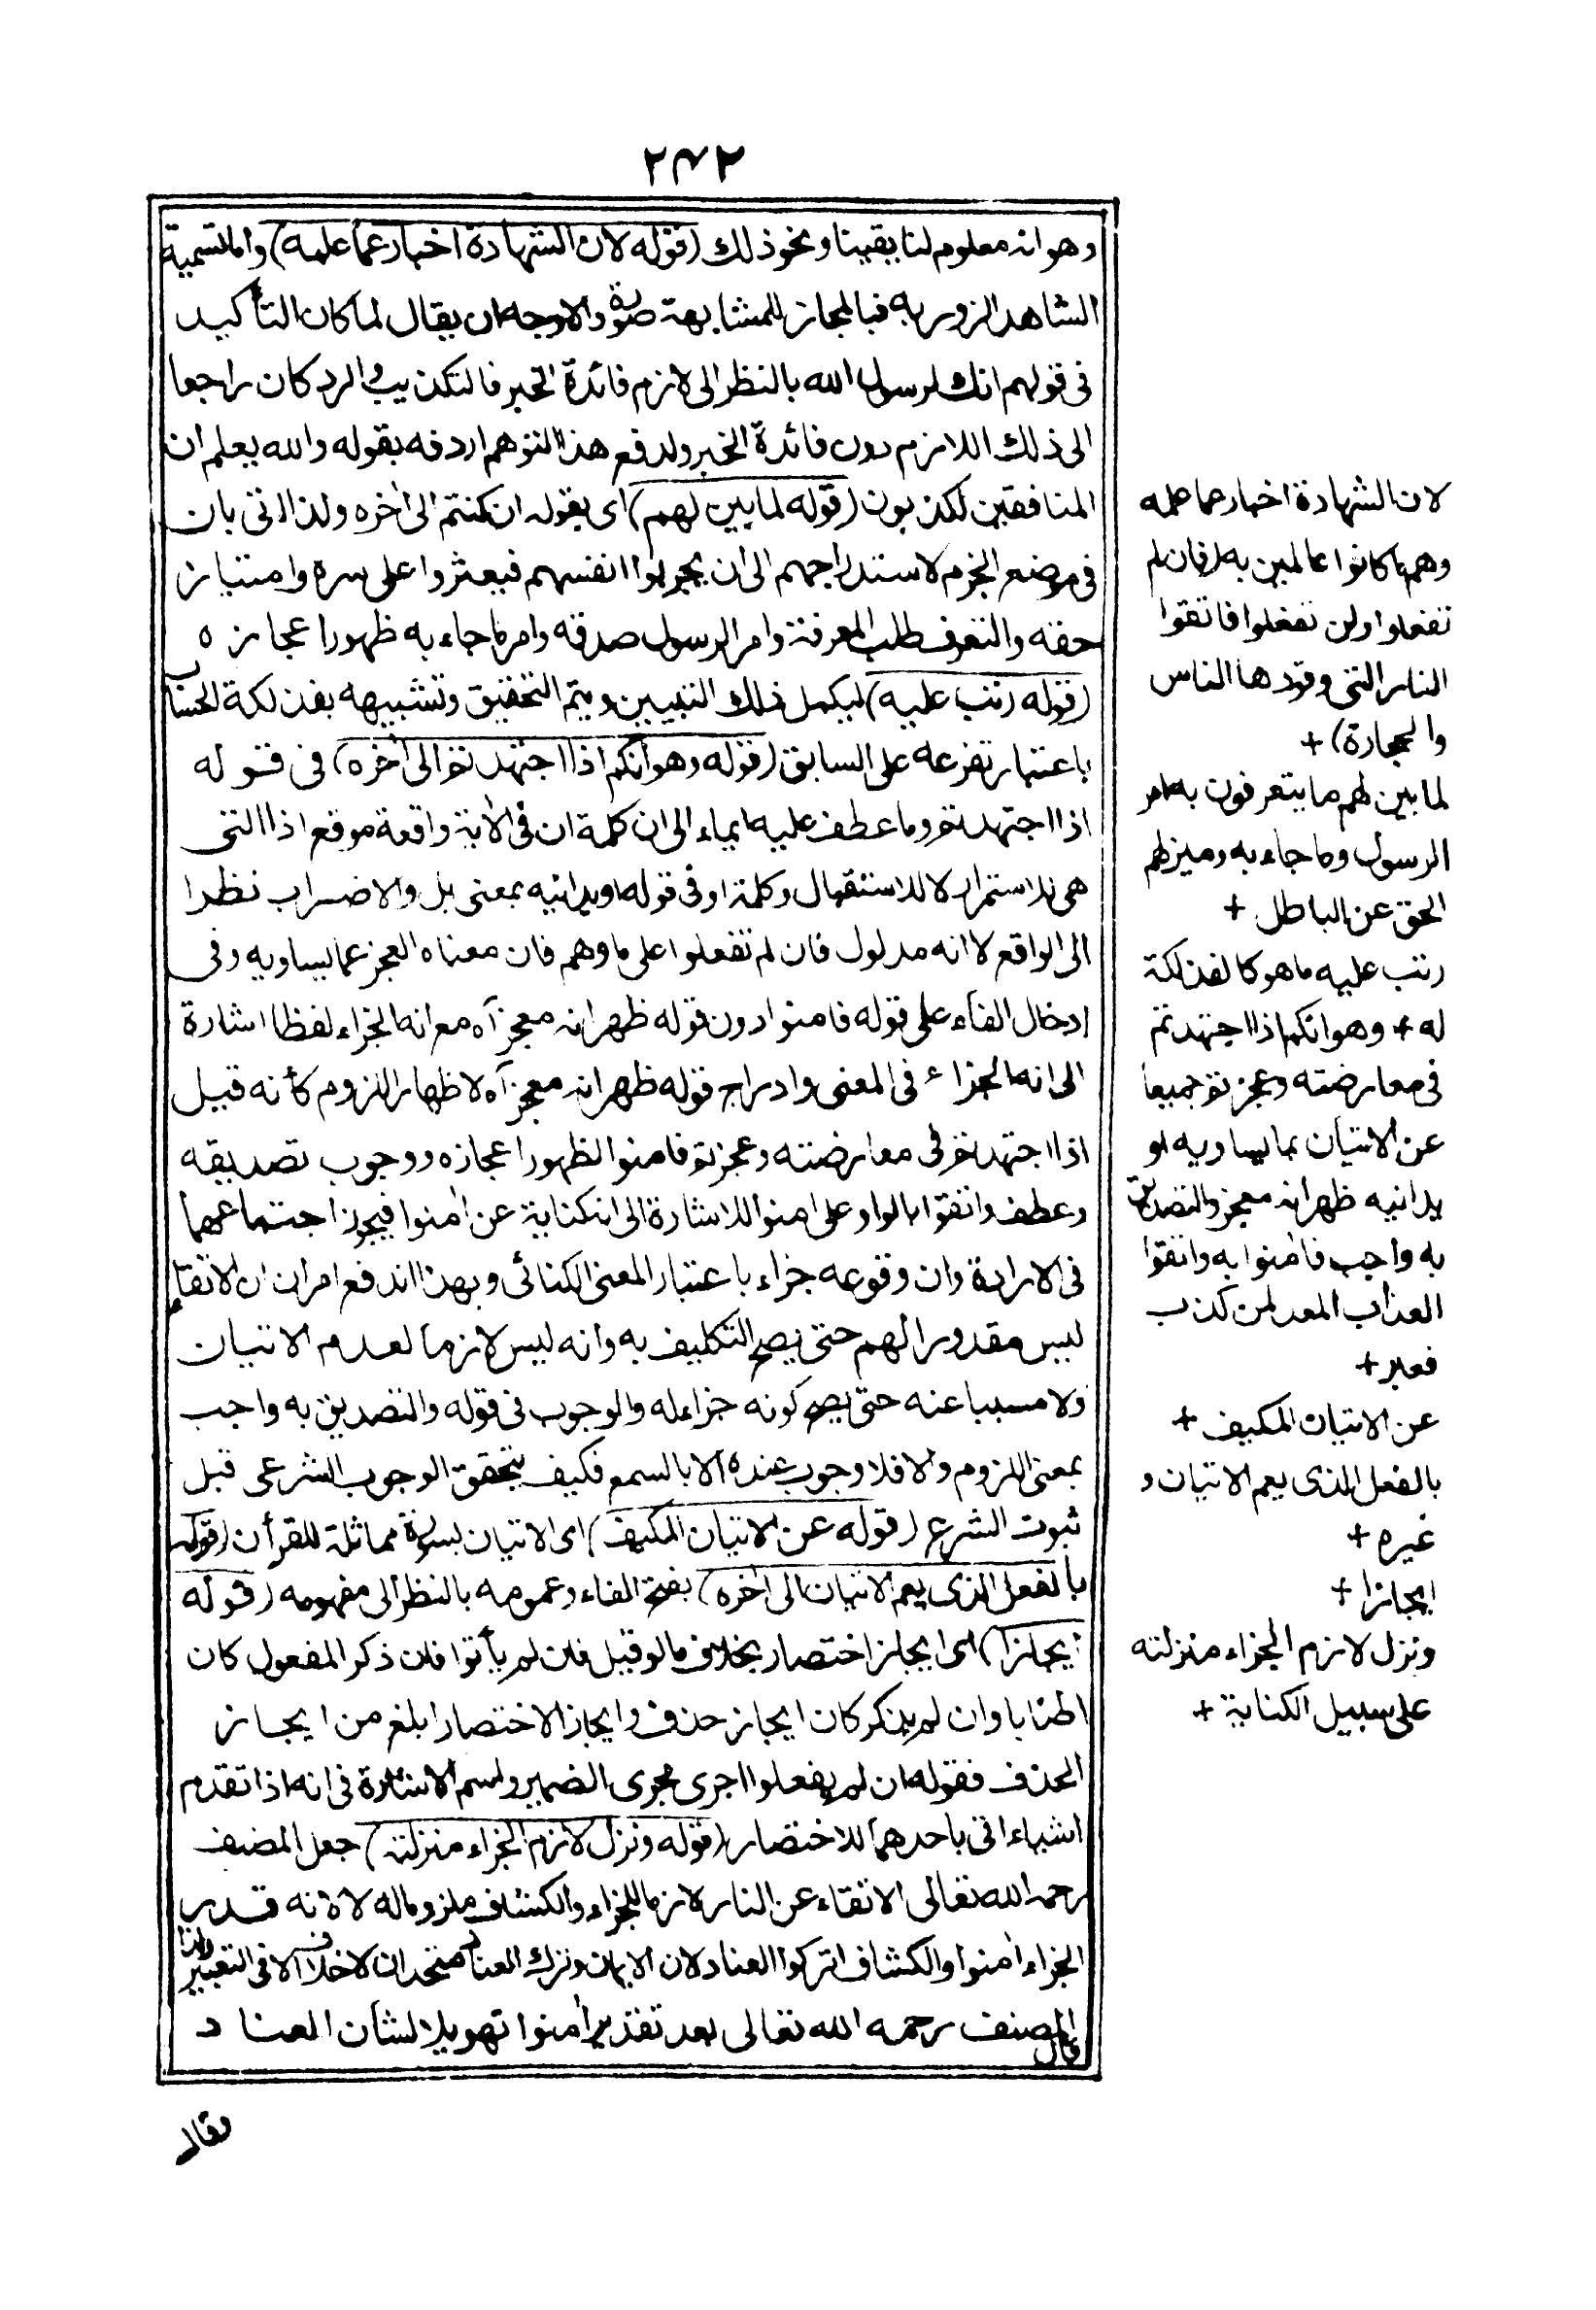 ٢٤٢
وهو انه معلوم لنا يقينا ونحو ذلك (قوله لان الشهادة اخبار عما علمه) واما تسمية
الشاهد الزور به فبالمجاز للمشابهة صورة والاوجه ان يقال لما كان التأكيد
فى قولهم انك لرسول الله بالنظر الى لازم فائدة الخبر فالتكذيب والرد كان راجعا
الى ذلك اللازم دون فائدة الخبر ولدفع هذا التوهم اردفه بقوله والله يعلم ان
المنافقين لكذبون (قوله لما بين لهم) اى بقوله ان كنتم الى أخره ولذا اتى بان
فى موضع الجزم لاستدراجهم الى ان يجربوا انفسهم فيعثروا على سره وامتياز
حقه والتعرف طلب المعرفة وامر الرسول صدقه وامر ما جاء به ظهور اعجازه
(قوله رتب عليه) ليكمل ذلك التبيين ويتم التحقيق وتشبيهه بفذلكة الحساب
باعتبار تفرعه على السابق (قوله وهو انكم اذا اجتهدتم الى أخره) فى قوله
اذا اجتهدتم وما عطف عليه ايماء الى ان كلمة ان فى الأية واقعة موقع اذا التى
هى للاستمرار لا للاستقبال وكلمة او فى قوله او يدانيه بمعنى بل والاضراب نظرا
الى الواقع لا انه مدلول فان لم تفعلوا على ما وهم فان معناه العجز عما يساويه وفى
ادخال الفاء على قوله فامنوا دون قوله ظهر انه معجز آه مع انه الجزاء لفظا اشارة
الى انه الجزاء فى المعنى وادراج قوله ظهر انه معجز آه لاظهار اللزوم كأنه قيل
اذا اجتهدتم فى معارضته وعجزتم فامنوا لظهور اعجازه ووجوب تصديقه
وعطف واتقوا بالواو على امنوا للاشارة الى انه كناية عن أمنوا فيجوز اجتماعهما
فى الارادة وان وقوعه جزاء باعتبار المعنى الكنائى وبهذا اندفع امران ان الاتقاء
ليس مقدورا لهم حتى يصح التكليف به وانه ليس لازما لعدم الاتيان
ولا مسببا عنه حتى يصح كونه جزاء له والوجوب فى قوله والتصديق به واجب
بمعنى اللزوم والا فلا وجوب عنده الا بالسمع فكيف يتحقق الوجوب الشرعى قبل
ثبوت الشرع (قوله عن الاتيان المكيف) اى الاتيان بسورة مماثلة للقرأن (قوله
بالفعل الذى يعم الاتيان الى أخره) بفتح الفاء وعمومه بالنظر الى مفهومه (قوله
ايجازا) اى ايجاز اختصار بخلاف ما لو قيل فان لم يأتوا فان ذكر المفعول كان
اطنابا وان لم يذكر كان ايجاز حذف وايجاز الاختصار ابلغ من ايجاز
الحذف فقوله ان لم يفعلوا اجرى مجرى الضمير واسم الاشارة فى انه اذا تقدم
اشياء اتى باحدهما للاختصار (قوله ونزل لازم الجزاء منزلته) جعل المصنف
رحمه الله تعالى الاتقاء عن النار لازما للجزاء والكشاف ملزوما له لانه قدر
الجزاء أمنوا والكشاف اتركوا العناد لان الايمان وترك العناد متحدان لا خلاف الا فى التعبير وانما
قال المصنف رحمه الله تعالى بعد تقدير أمنوا تهويلا لشأن العناد
لان الشهادة اخبار عما علمه
وهم ما كانوا عالمين به (فان لم
تفعلوا ولن تفعلوا فاتقوا
النار التى وقودها الناس
والحجارة) +
لما بين لهم ما يتعرفون به امر
الرسول وما جاء به وميز لهم
الحق عن الباطل +
رتب عليه ما هو كالفذلكة
له + وهو انكم اذا اجتهدتم
فى معارضته وعجزتم جميعا
عن الاتيان بما يساويه او
يدانيه ظهر انه معجز والتصديق
به واجب فأمنوا به واتقوا
العذاب المعد لمن كذب
فعبر +
عن الاتيان المكيف +
بالفعل الذى يعم الاتيان و
غيره +
ايجازا +
ونزل لازم الجزاء منزلته
على سبيل الكناية +